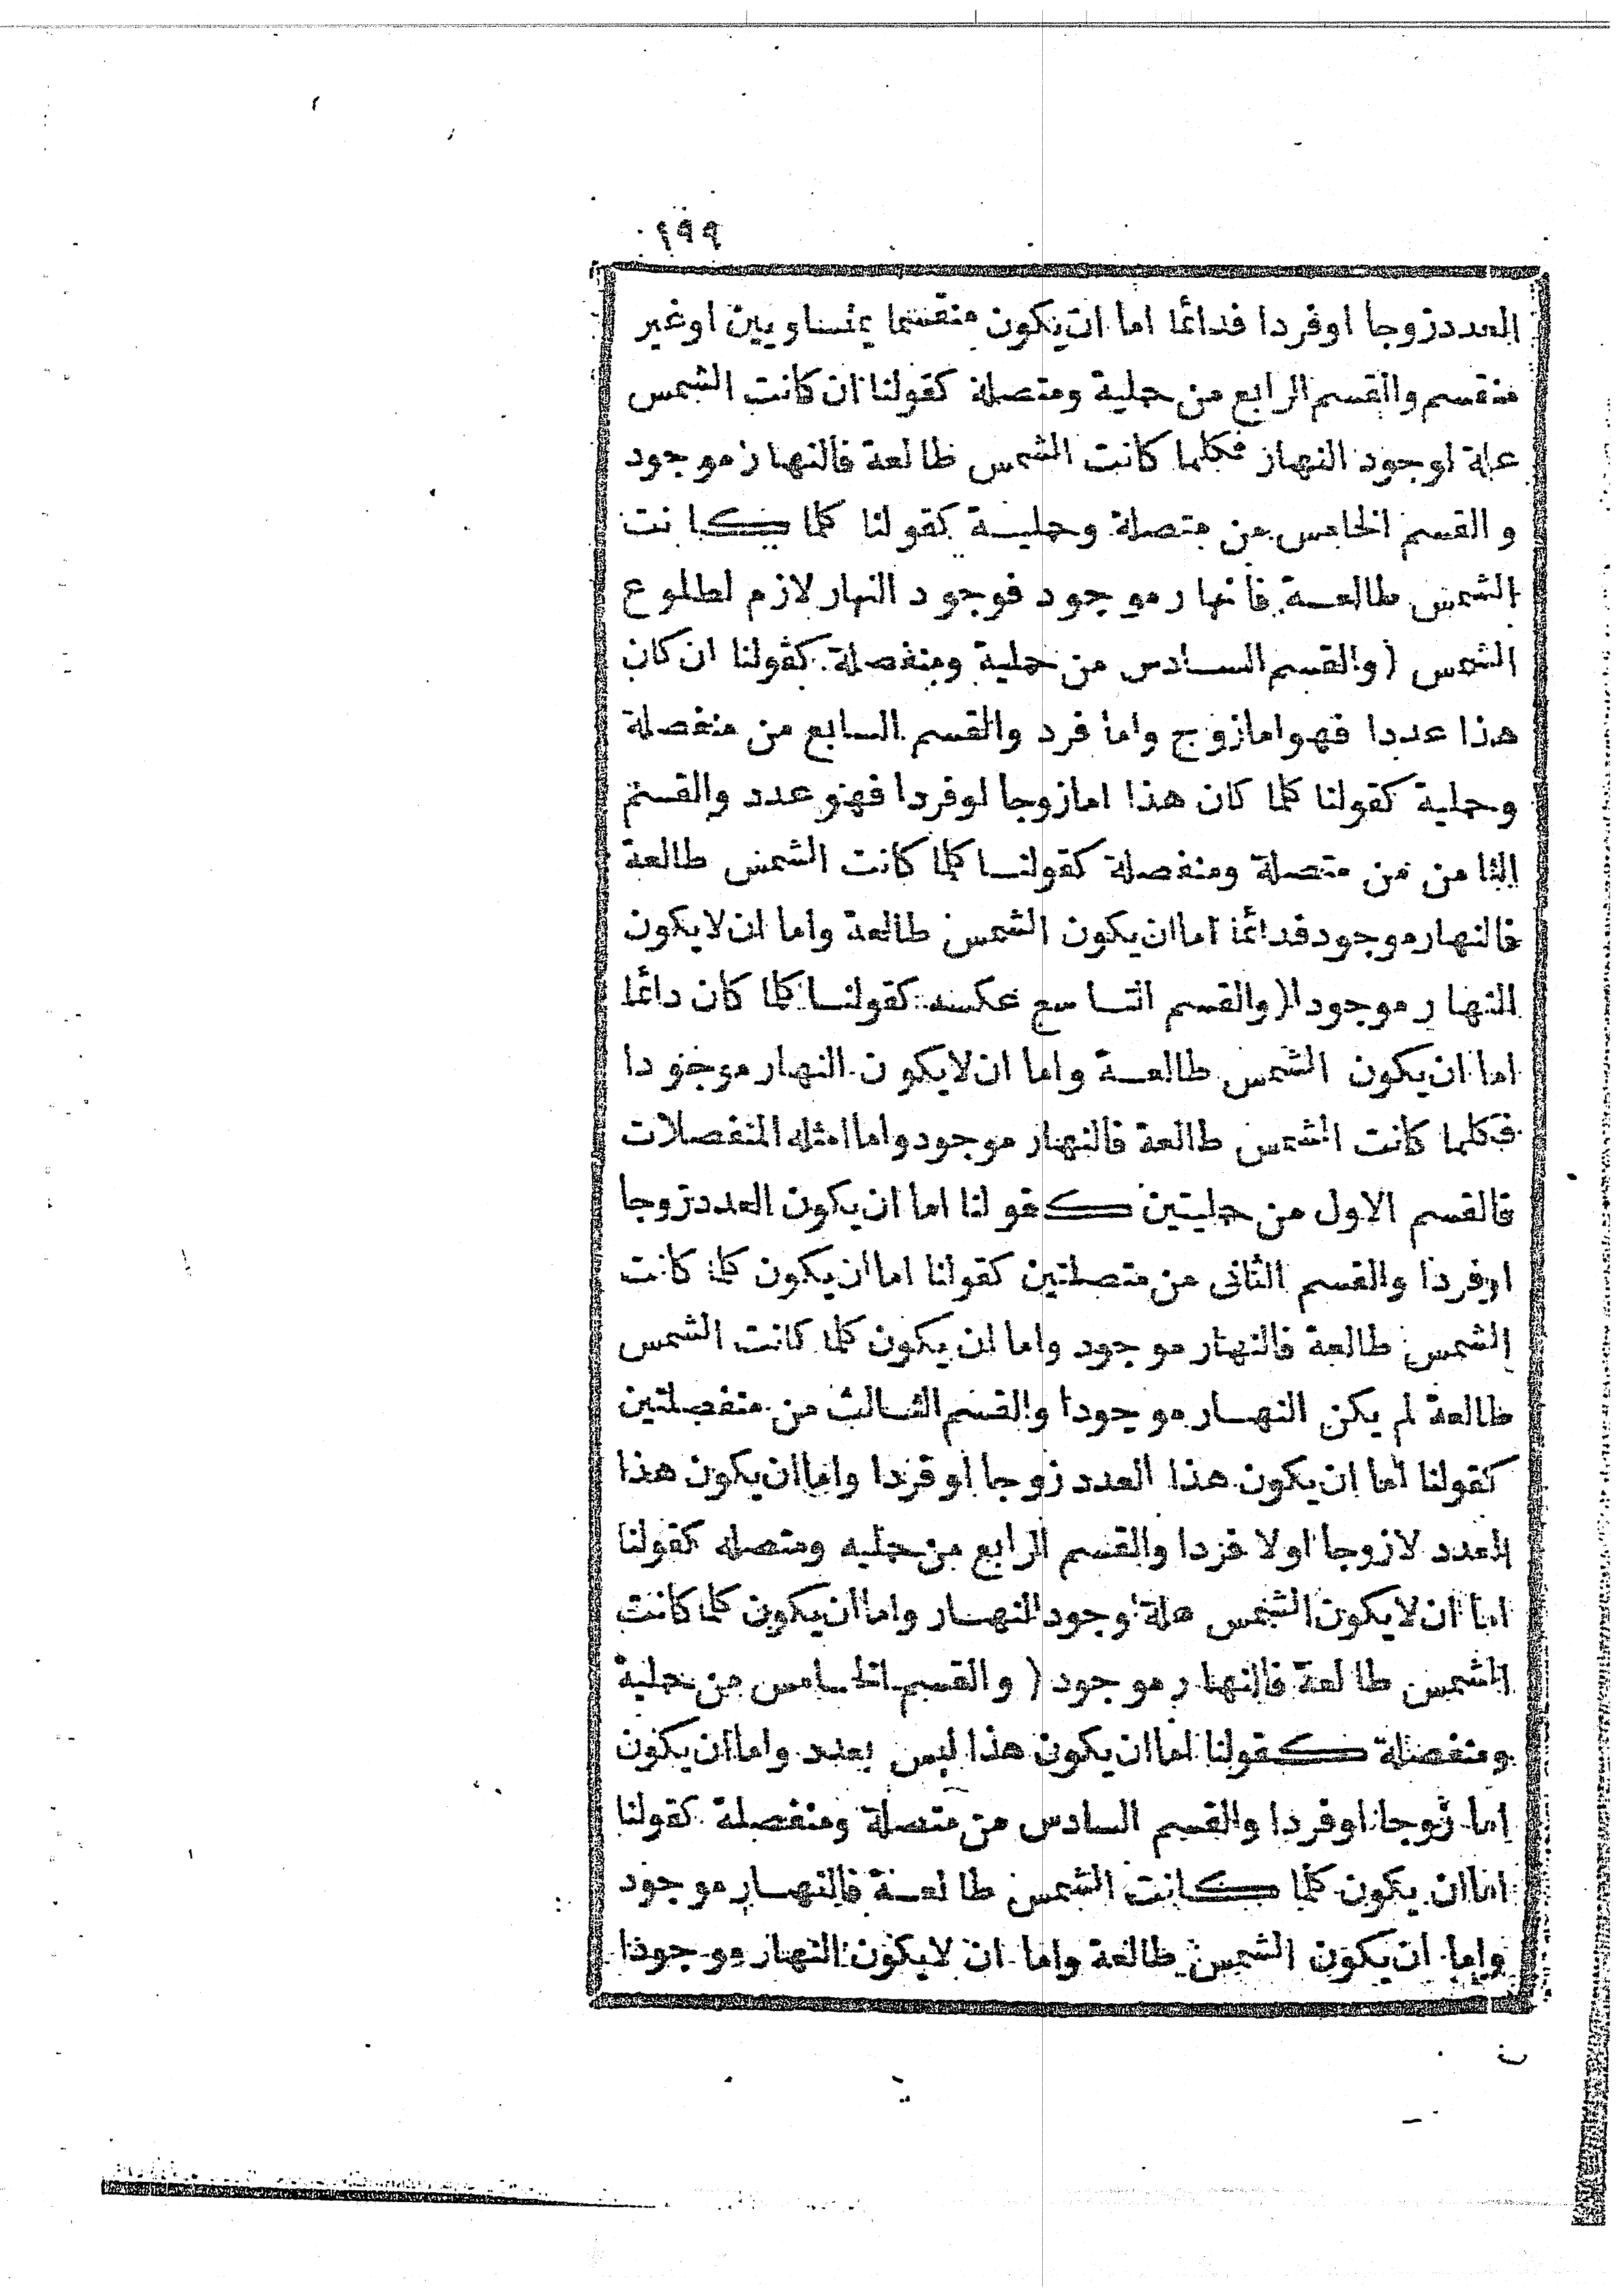 ١٩٩
العدد زوجا اوفردا فدائما اما ان يكون منقسما بمتساويين اوغير
منقسم والقسم الرابع من حملية ومتصلة كقولنا ان كانت الشمس
علة لوجود النهار فكلما كانت الشمس طالعة فالنهار موجود
والقسم الخامس من متصلة وحملية كقولنا كلما كانت
الشمس طالعة فالنهار موجود فوجود النهار لازم لطلوع
الشمس (والقسم السادس من حملية ومنفصلة كقولنا ان كان
هذا عددا فهو اما زوج واما فرد والقسم السابع من منفصلة
وحملية كقولنا كلما كان هذا اما زوجا اوفردا فهو عدد والقسم
الثامن من متصلة ومنفصلة كقولنا كلما كانت الشمس طالعة
فالنهار موجود فدائما اما ان يكون الشمس طالعة واما ان لا يكون
النهار موجودا (والقسم التاسع عكسه كقولنا كلما كان دائما
اما ان يكون الشمس طالعة واما ان لا يكون النهار موجودا
فكلما كانت الشمس طالعة فالنهار موجود واما امثله المنفصلات
فالقسم الاول من حمليتين كقولنا اما ان يكون العدد زوجا
اوفردا والقسم الثانى من متصلتين كقولنا اما ان يكون كلما كانت
الشمس طالعة فالنهار موجود واما ان يكون كلما كانت الشمس
طالعة لم يكن النهار موجودا والقسم الثالث من منفصلتين
كقولنا اما ان يكون هذا العدد زوجا اوفردا واما ان يكون هذا
العدد لازوجا اولا فردا والقسم الرابع من حمليه ومتصله كقولنا
اما ان لا يكون الشمس علة لوجود النهار واما ان يكون كلما كانت
الشمس طالعة فالنهار موجود (والقسم الخامس من حملية
ومنفصلة كقولنا اما ان يكون هذا ليس بعدد واما ان يكون
اما زوجا اوفردا والقسم السادس من متصلة ومنفصلة كقولنا
اما ان يكون كلما كانت الشمس طالعة فالنهار موجود
واما ان يكون الشمس طالعة واما ان لا يكون النهار موجودا